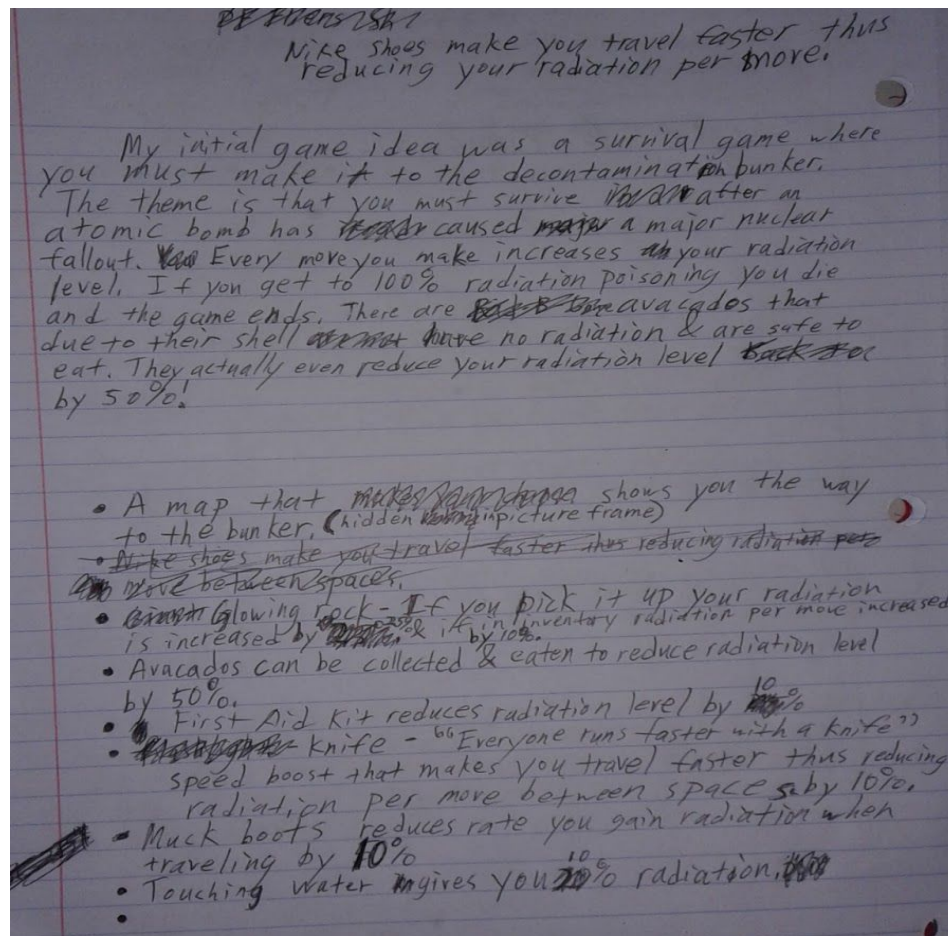 Nike shoes make you travel faster thus
reducing your radiation per move.
My initial game idea was a survival game where
you must make it to the decontamination bunker.
The theme is that you must survive after an
atomic bomb has caused a major nuclear
fallout. Every move you make increases your radiation
level. If you get to 100% radiation poisoning you die
and the game ends. There are avacados that
due to their shell have no radiation & are safe to
eat. They actually even reduce your radiation level
by 50%!
• A map that shows you the way
to the bunker. (hidden in picture frame)
• Nike shoes make you travel faster thus reducing radiation per
move between spaces.
• Glowing rock - If you pick it up your radiation
is increased by 25% & if in inventory radiation per move increased
by 10%.
• Avacados can be collected & eaten to reduce radiation level
by 50%.
• First Aid Kit reduces radiation level by 10%
• Knife - "Everyone runs faster with a knife"
speed boost that makes you travel faster thus reducing
radiation per move between spaces by 10%.
- Muck boots reduces rate you gain radiation when
traveling by 10%
• Touching water gives you 10% radiation.
•